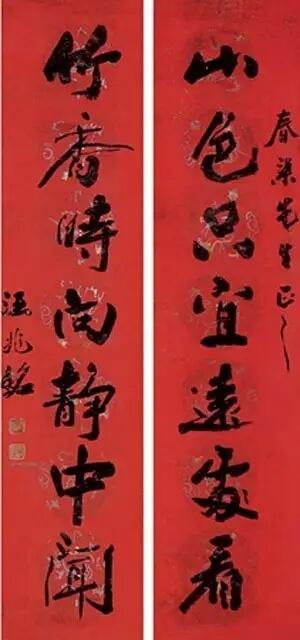 春先生正之
山色只宜遠處看
竹香時向静中聞
汪兆銘